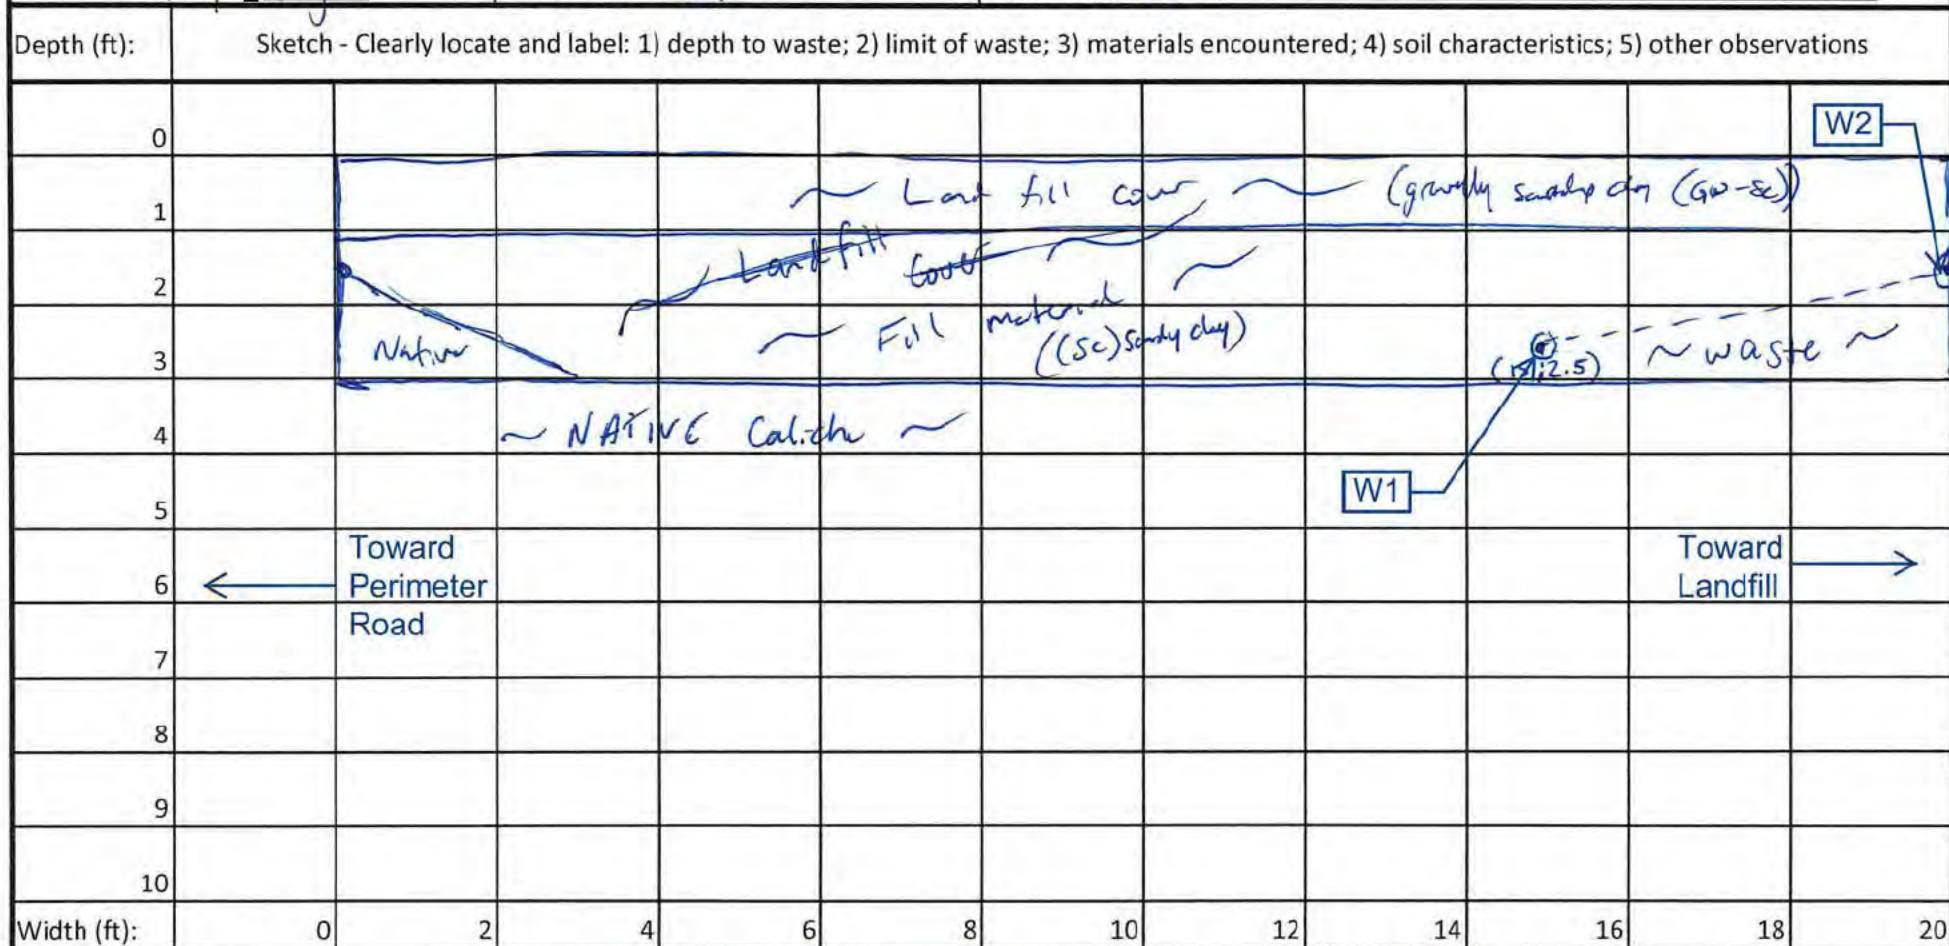 Depth (ft):
Sketch - Clearly locate and label: 1) depth to waste; 2) limit of waste; 3) materials encountered; 4) soil characteristics; 5) other observations
W2
0
~ Land fill cover ~ (gravelly sandy clay (GW-SC))
1
Landfill cover
2
~ Fill material ~
((SC) sandy clay)
Native
3
(15, 2.5)
~ waste ~
4
~ NATIVE Caliche ~
W1
5
Toward
Perimeter
Road
Toward
Landfill
6
7
8
9
10
Width (ft):
0 2 4 6 8 10 12 14 16 18 20